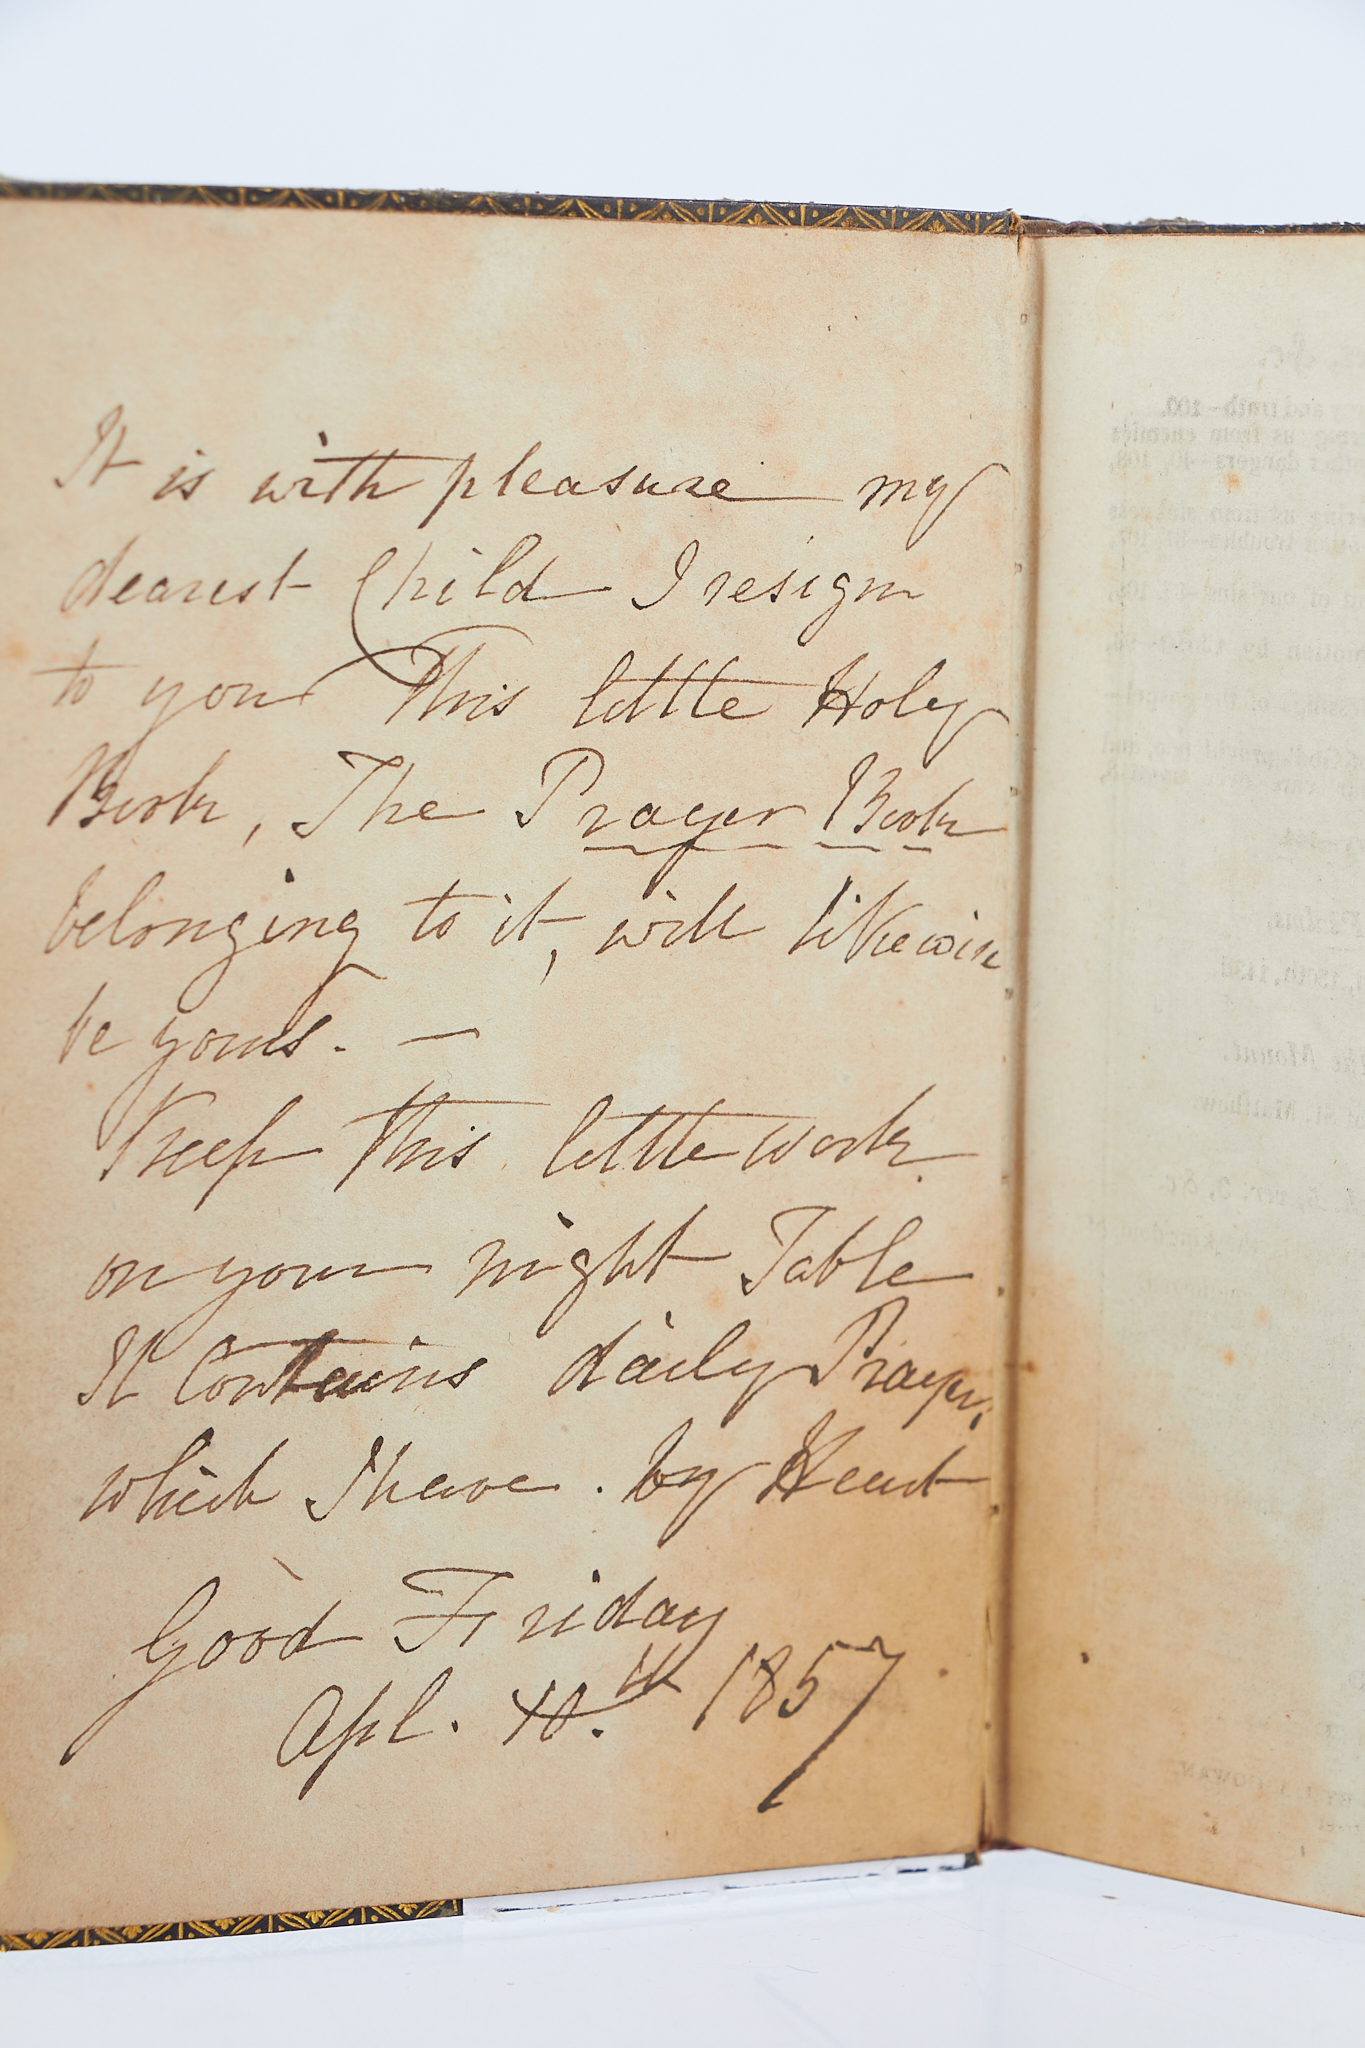 It is with pleasure my
dearest Child I resign
to you This little Holy
Book, The Prayer Book
belonging to it, will likewise
be yours. —
Keep this little work
on your night Table
It Contains daily Prayer,
which I have . by Heart
Good Friday
Apl. 10.th 1857
and truth—100.
us from enemies
dangers—40, 108,
us from
troubles—
of our sins—
by Christ—
of the gospel—
Psalms.
Mount.
St. Matthew.
ver. 3, &c.